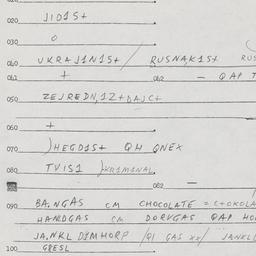 020 JID1S+
030 0
040 UKRAJ1N1S+ / RUSNAK1S+ RUS
041 + 042 — QAP T
050 ZEJREDN,12+DAJC+
060 +
070 )HEGD1S+ QH QNEX
080 TVIS1 )KR1M1NAL
082 —
090 BA,NGAS CM CHOCOLATE = C+OKOLA
HANDGAS CM DORKGAS QAP HO
JA,NKL DIMHORP /Q1 GAS xx/ JANKL
100 GRESL